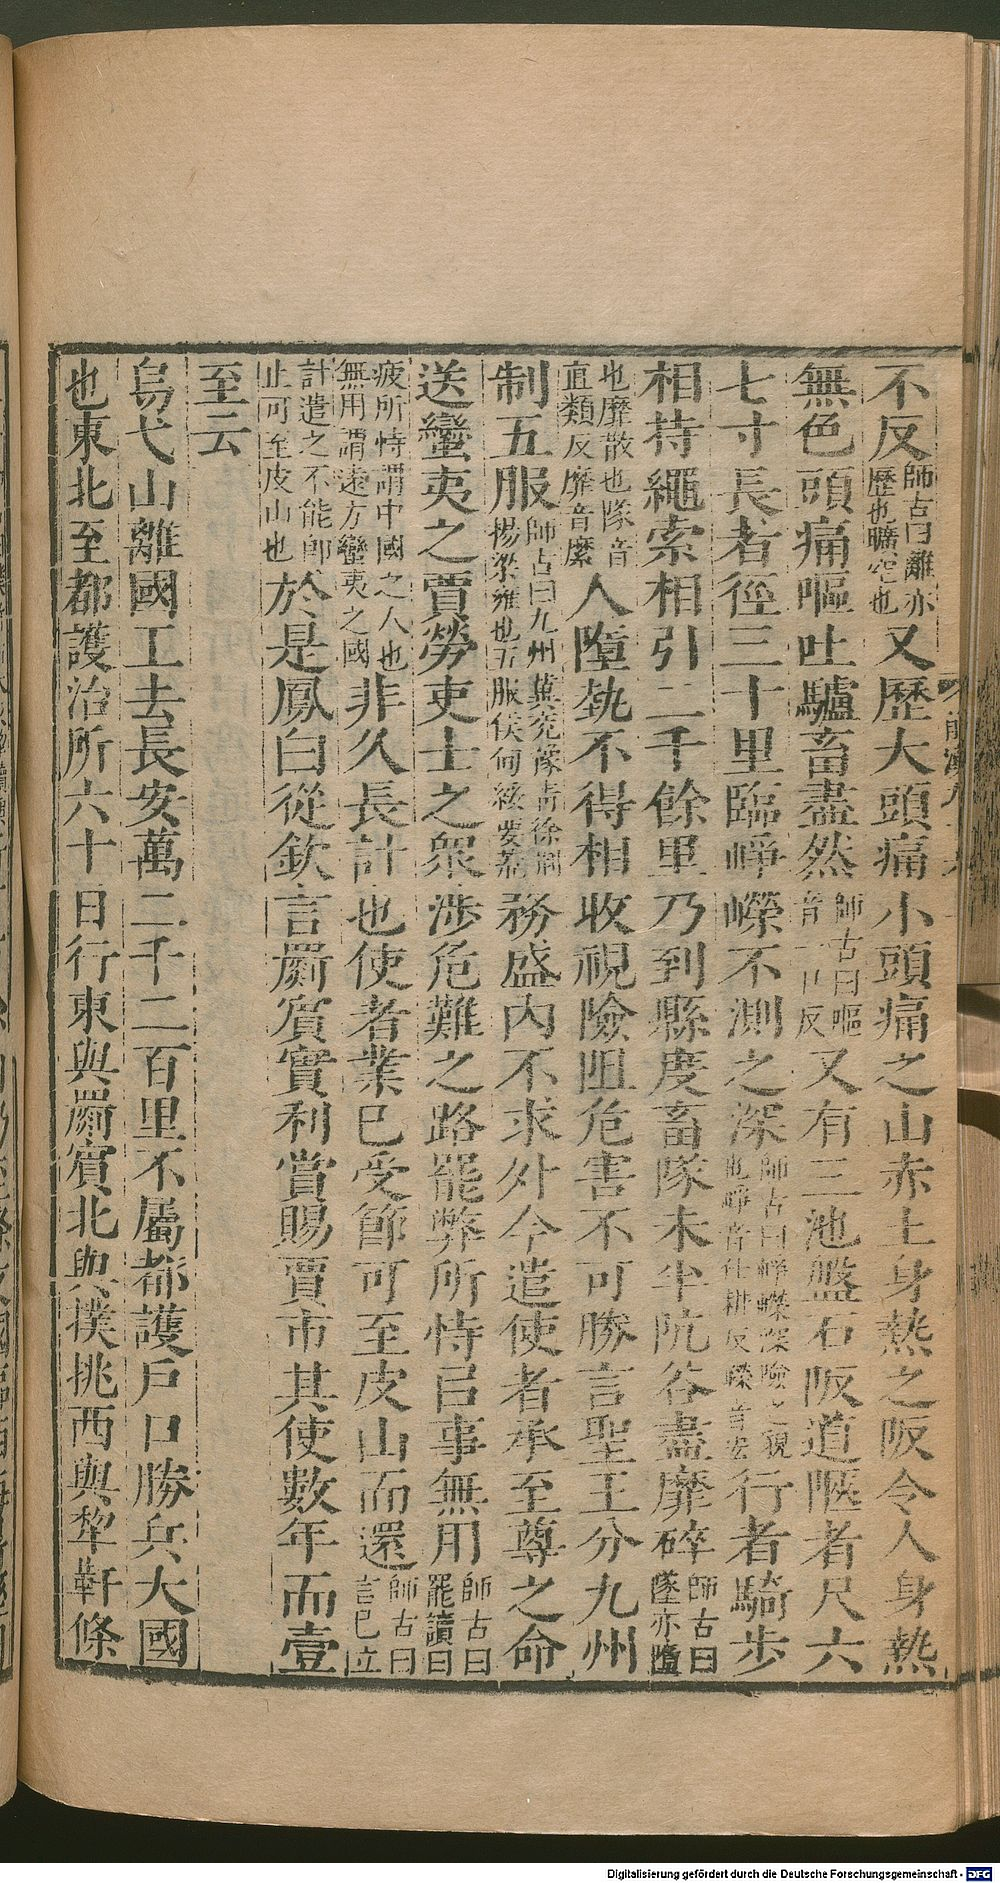 不反師古曰離亦歷也曠空也又歷大頭痛小頭痛之山赤土身熱之阪令人身熱
無色頭痛嘔吐驢畜盡然師古曰嘔音一口反又有三池盤石阪道陿者尺六
七寸長者徑三十里臨崢嶸不測之深師古曰崢嶸深險之貌也崢音仕耕反嶸音宏行者騎步
相持繩索相引二千餘里乃到縣度畜隊未半阬谷盡靡碎師古曰墜亦墮
也靡散也隊音直類反靡音縻人墮埶不得相收視險阻危害不可勝言聖王分九州
制五服師古曰九州冀兗豫青徐荊楊梁雍也五服侯甸綏要荒務盛內不求外今遣使者承至尊之命
送蠻夷之賈勞吏士之眾涉危難之路罷弊所恃㠯事無用師古曰罷讀曰
疲所恃謂中國之人也無用謂遠方蠻夷之國非久長計也使者業已受節可至皮山而還師古曰言已立
計遣之不能即止可至皮山也於是鳳白從欽言罽賓實利賞賜賈市其使數年而壹
至云
烏弋山離國王去長安萬二千二百里不屬都護戶口勝兵大國
也東北至都護治所六十日行東與罽賓北與撲挑西與犂軒條
Digitalisierung gefördert durch die Deutsche Forschungsgemeinschaft - DFG